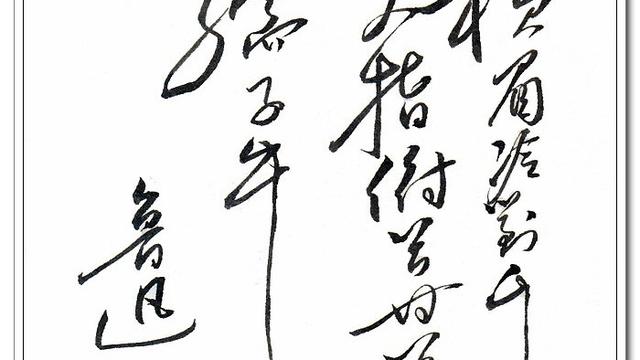 横眉冷對千
夫指俯首
孺子牛
鲁迅